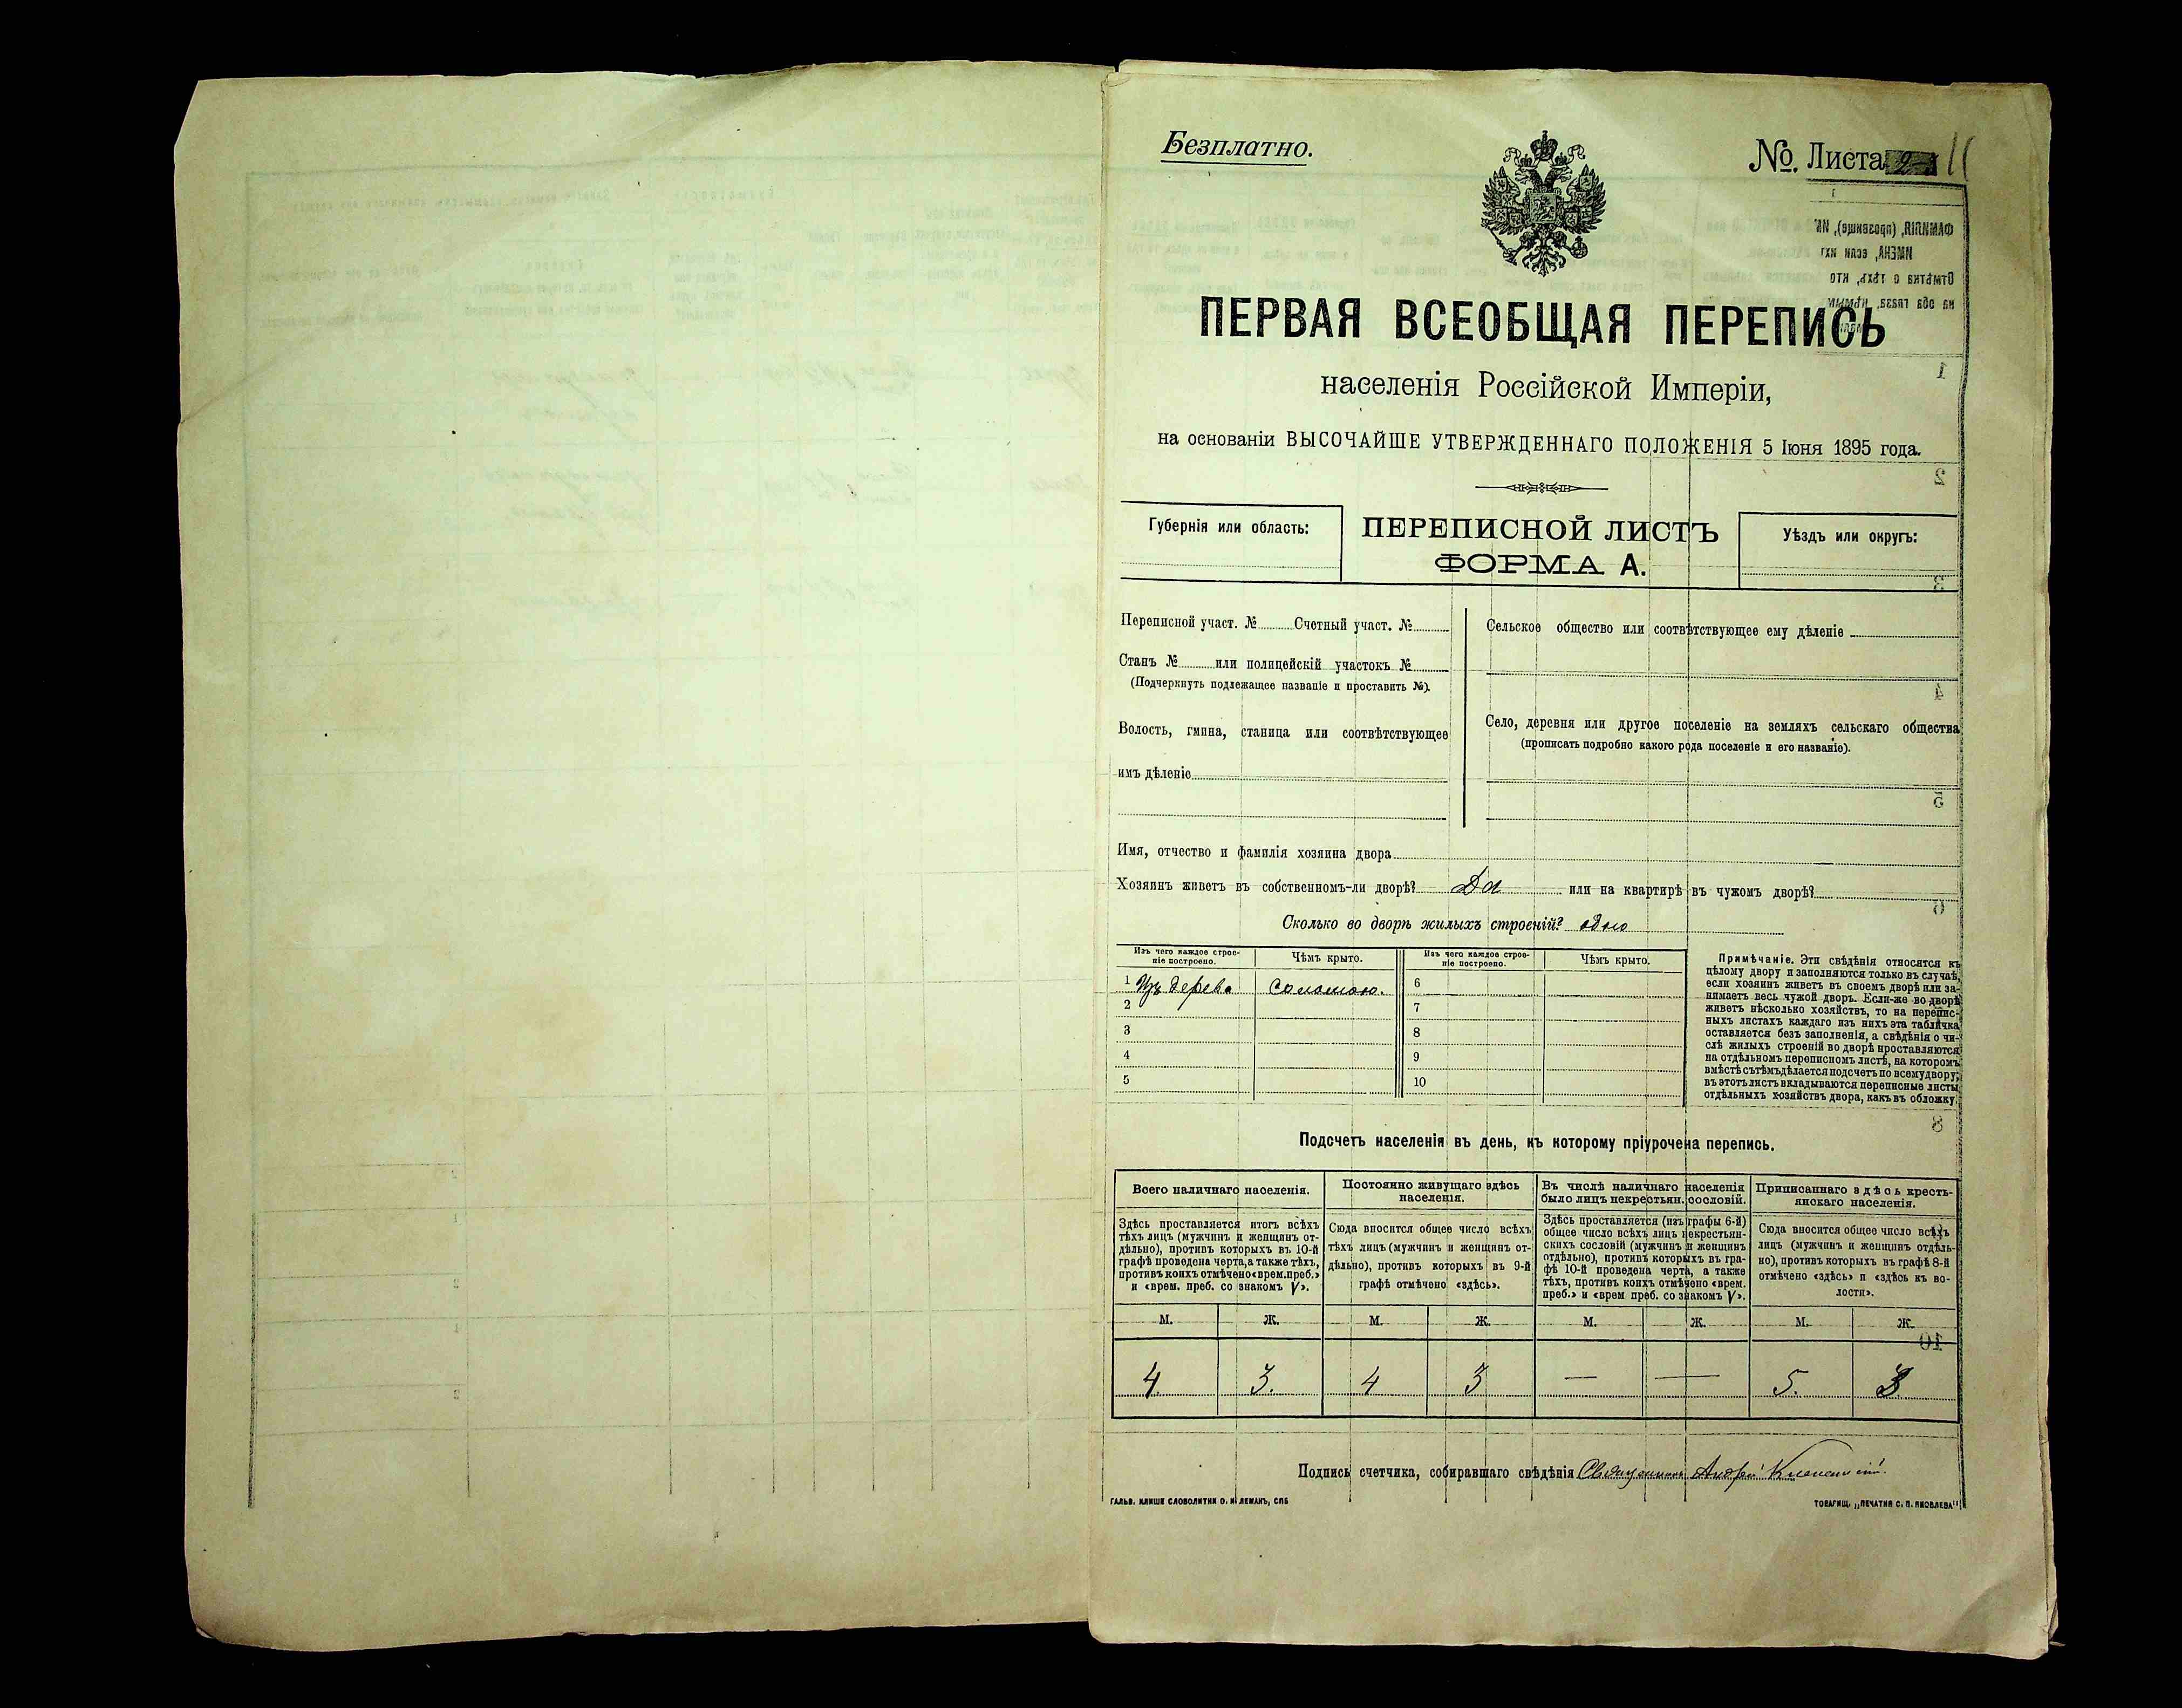 Безплатно.
№. Листа
ПЕРВАЯ ВСЕОБЩАЯ ПЕРЕПИСЬ
населенія Россійской Имперіи,
на основаніи ВЫСОЧАЙШЕ УТВЕРЖДЕННАГО ПОЛОЖЕНІЯ 5 Іюня 1895 года.
Губернія или область:
ПЕРЕПИСНОЙ ЛИСТЪ
ФОРМА А.
Уѣздъ или округъ:
Переписной участ. № Счетный участ. №
Станъ № или полицейскій участокъ №
(Подчеркнуть подлежащее названіе и проставить №).
Волость, гмина, станица или соотвѣтствующее
имъ дѣленіе
Сельское общество или соотвѣтствующее ему дѣленіе
Село, деревня или другое поселеніе на земляхъ сельскаго общества
(прописать подробно какого рода поселеніе и его названіе).
Имя, отчество и фамилія хозяина двора
Хозяинъ живетъ въ собственномъ-ли дворѣ? Да или на квартирѣ въ чужомъ дворѣ?
Сколько во дворѣ жилыхъ строеній? одно
Изъ чего каждое строе-
ніе построено.
Чѣмъ крыто.
1 Изъ дерева Соломою.
2
3
4
5
Изъ чего каждое строе-
ніе построено.
Чѣмъ крыто.
6
7
8
9
10
Примѣчаніе. Эти свѣдѣнія относятся къ
цѣлому двору и заполняются только въ случаѣ,
если хозяинъ живетъ въ своемъ дворѣ или за-
нимаетъ весь чужой дворъ. Если-же во дворѣ
живетъ нѣсколько хозяйствъ, то на перепис-
ныхъ листахъ каждаго изъ нихъ эта табличка
оставляется безъ заполненія, а свѣдѣнія о чи-
слѣ жилыхъ строеній во дворѣ проставляются
на отдѣльномъ переписномъ листѣ, на которомъ
вмѣстѣ съ тѣмъ дѣлается подсчетъ по всему двору;
въ этотъ листъ вкладываются переписные листы
отдѣльныхъ хозяйствъ двора, какъ въ обложку.
Подсчетъ населенія въ день, къ которому пріурочена перепись.
Всего наличнаго населенія.
Здѣсь проставляется итогъ всѣхъ
тѣхъ лицъ (мужчинъ и женщинъ от-
дѣльно), противъ которыхъ въ 10-й
графѣ проведена черта, а также тѣхъ,
противъ коихъ отмѣчено «врем. преб.»
и «врем. преб. со знакомъ V».
Постоянно живущаго здѣсь
населенія.
Сюда вносится общее число всѣхъ
тѣхъ лицъ (мужчинъ и женщинъ от-
дѣльно), противъ которыхъ въ 9-й
графѣ отмѣчено «здѣсь».
Въ числѣ наличнаго населенія
было лицъ некрестьян. сословій.
Здѣсь проставляется (изъ графы 6-й)
общее число всѣхъ лицъ некрестьян-
скихъ сословій (мужчинъ и женщинъ
отдѣльно), противъ которыхъ въ гра-
фѣ 10-й проведена черта, а также
тѣхъ, противъ коихъ отмѣчено «врем.
преб.» и «врем преб. со знакомъ V».
Приписаннаго здѣсь кресть-
янскаго населенія.
Сюда вносится общее число всѣхъ
лицъ (мужчинъ и женщинъ отдѣль-
но), противъ которыхъ въ графѣ 8-й
отмѣчено «здѣсь» и «здѣсь къ во-
лости».
М. Ж. М. Ж. М. Ж. М. Ж.
4. 3. 4 3 — — 5. 3
Подпись счетчика, собиравшаго свѣдѣнія Андрей
ГАЛЬВ. КЛИШЕ СЛОВОЛИТНИ О. И. ЛЕМАНЪ, СПБ
ТОВАРИЩ. „ПЕЧАТНЯ С. П. ЯКОВЛЕВА"